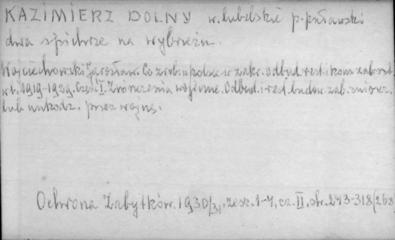 KAZIMIERZ DOLNY w. lubelskie p. puławski
dwa spichrze na wybrzeżu.
Wojciechowski Jarosław. Co zrobiono w Polsce w zakr. odbud. rest. i kons. zab.
w l. 1919-1929. Część I. Zniszczenia wojenne. Odbud. i rest. budow. zab. zniszcz.
lub uszkodz. przez wojnę.
Ochrona Zabytków. 1930/31, zesz. 1-4, cz. II, str. 243-318 (268)